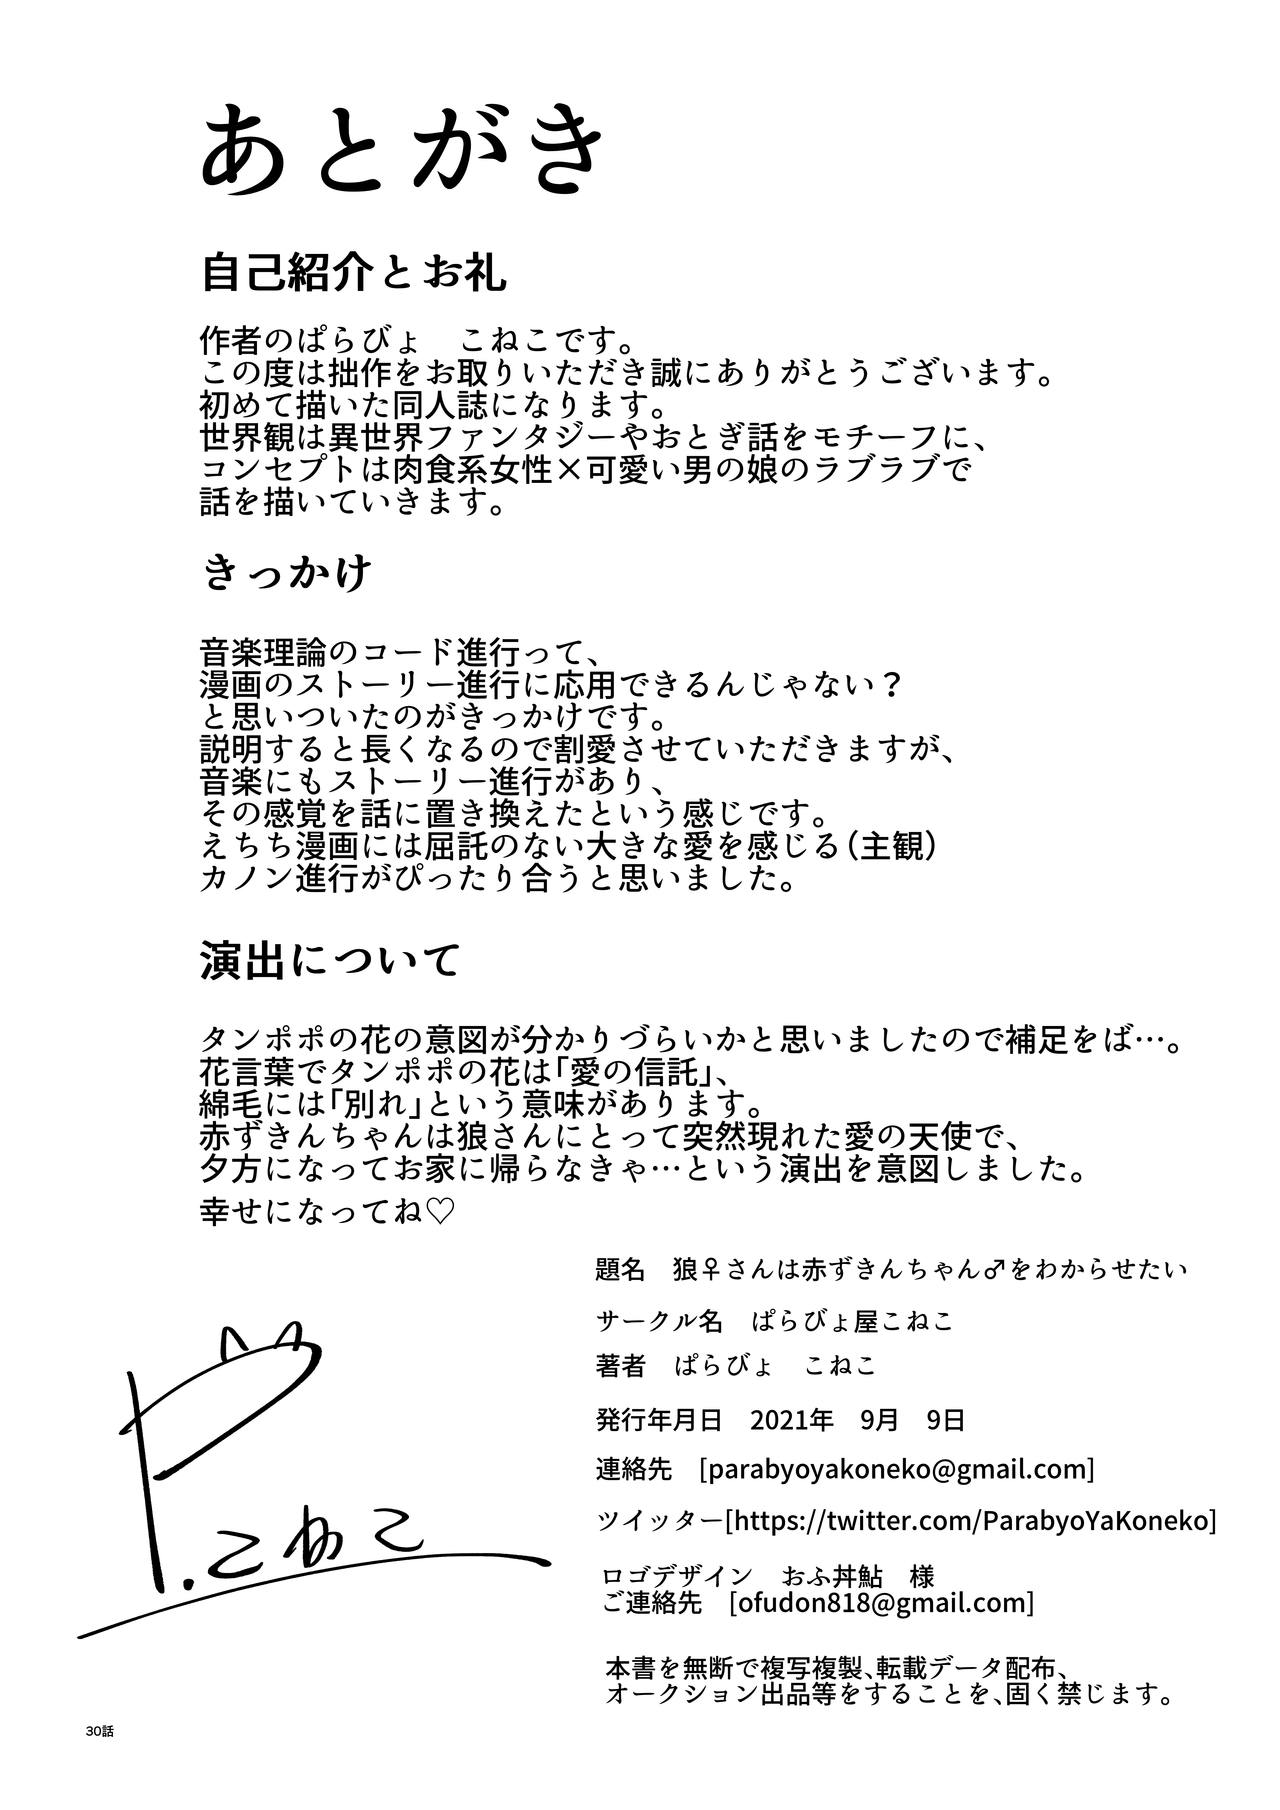 あとがき
自己紹介とお礼
作者のぱらびょ　こねこです。
この度は拙作をお取りいただき誠にありがとうございます。
初めて描いた同人誌になります。
世界観は異世界ファンタジーやおとぎ話をモチーフに、
コンセプトは肉食系女性×可愛い男の娘のラブラブで
話を描いていきます。
きっかけ
音楽理論のコード進行って、
漫画のストーリー進行に応用できるんじゃない？
と思いついたのがきっかけです。
説明すると長くなるので割愛させていただきますが、
音楽にもストーリー進行があり、
その感覚を話に置き換えたという感じです。
えちち漫画には屈託のない大きな愛を感じる（主観）
カノン進行がぴったり合うと思いました。
演出について
タンポポの花の意図が分かりづらいかと思いましたので補足をば…。
花言葉でタンポポの花は「愛の信託」、
綿毛には「別れ」という意味があります。
赤ずきんちゃんは狼さんにとって突然現れた愛の天使で、
夕方になってお家に帰らなきゃ…という演出を意図しました。
幸せになってね♡
題名　狼♀さんは赤ずきんちゃん♂をわからせたい
サークル名　ぱらびょ屋こねこ
著者　ぱらびょ　こねこ
発行年月日　2021年　9月　9日
連絡先　[parabyoyakoneko@gmail.com]
ツイッター[https://twitter.com/ParabyoYaKoneko]
ロゴデザイン　おふ丼鮎　様
ご連絡先　[ofudon818@gmail.com]
本書を無断で複写複製、転載データ配布、
オークション出品等をすることを、固く禁じます。
P.こねこ
30話